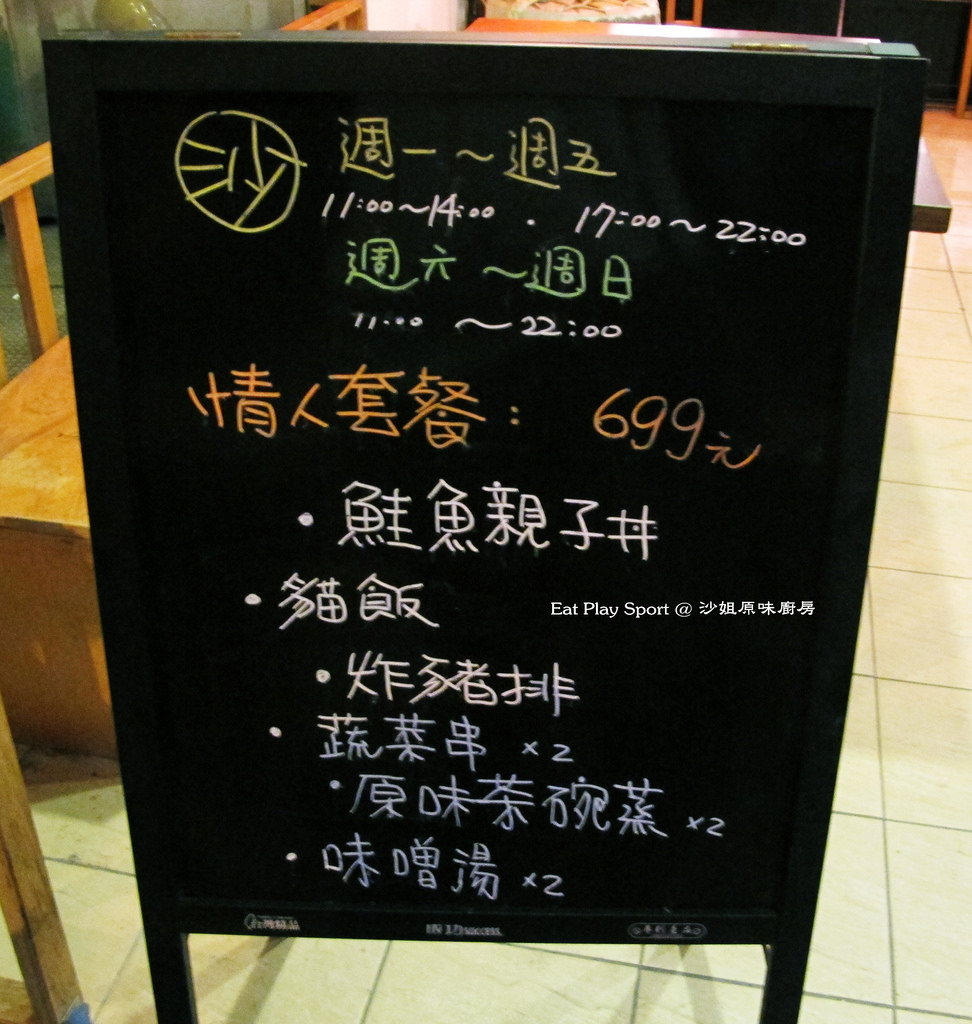 沙
週一~週五
11:00~14:00 . 17:00~22:00
週六~週日
11:00 ~22:00
情人套餐: 699元
·鮭魚親子丼
·貓飯
Eat Play Sport @ 沙姐原味廚房
·炸豬排
·蔬菜串 ×2
·原味茶碗蒸 ×2
·味噌湯 ×2